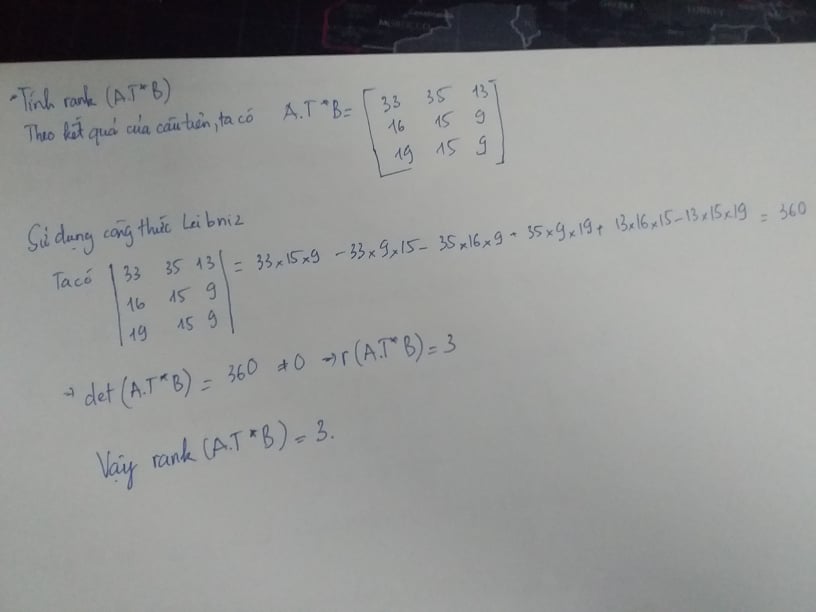 - Tính rank (A.T*B)
Theo kết quả của câu trên, ta có A.T*B= [33 35 13
16 15 9
19 15 9]
Sử dụng công thức Leibniz
Ta có |33 35 13
16 15 9
19 15 9| = 33x15x9 - 33x9x15 - 35x16x9 + 35x9x19 + 13x16x15 - 13x15x19 = 360
→ det (A.T*B) = 360 ≠0 → r(A.T*B) = 3
Vậy rank (A.T*B) = 3.